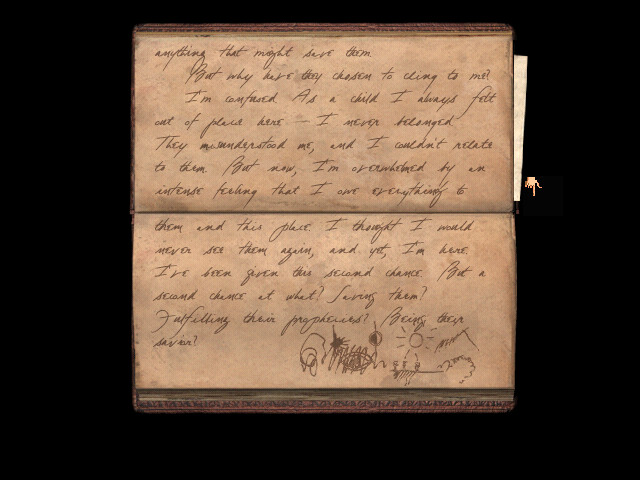 anything that might save them
But why have they chosen to cling to me?
I'm confused. As a child I always felt
out of place here — I never belonged.
They misunderstood me, and I couldn't relate
to them. But now, I'm overwhelmed by an
intense feeling that I owe everything to
them and this place. I thought I would
never see them again, and yet, I'm here.
I've been given this second chance. But a
second chance at what? Saving them?
Fulfilling their prophecies? Being their
savior?